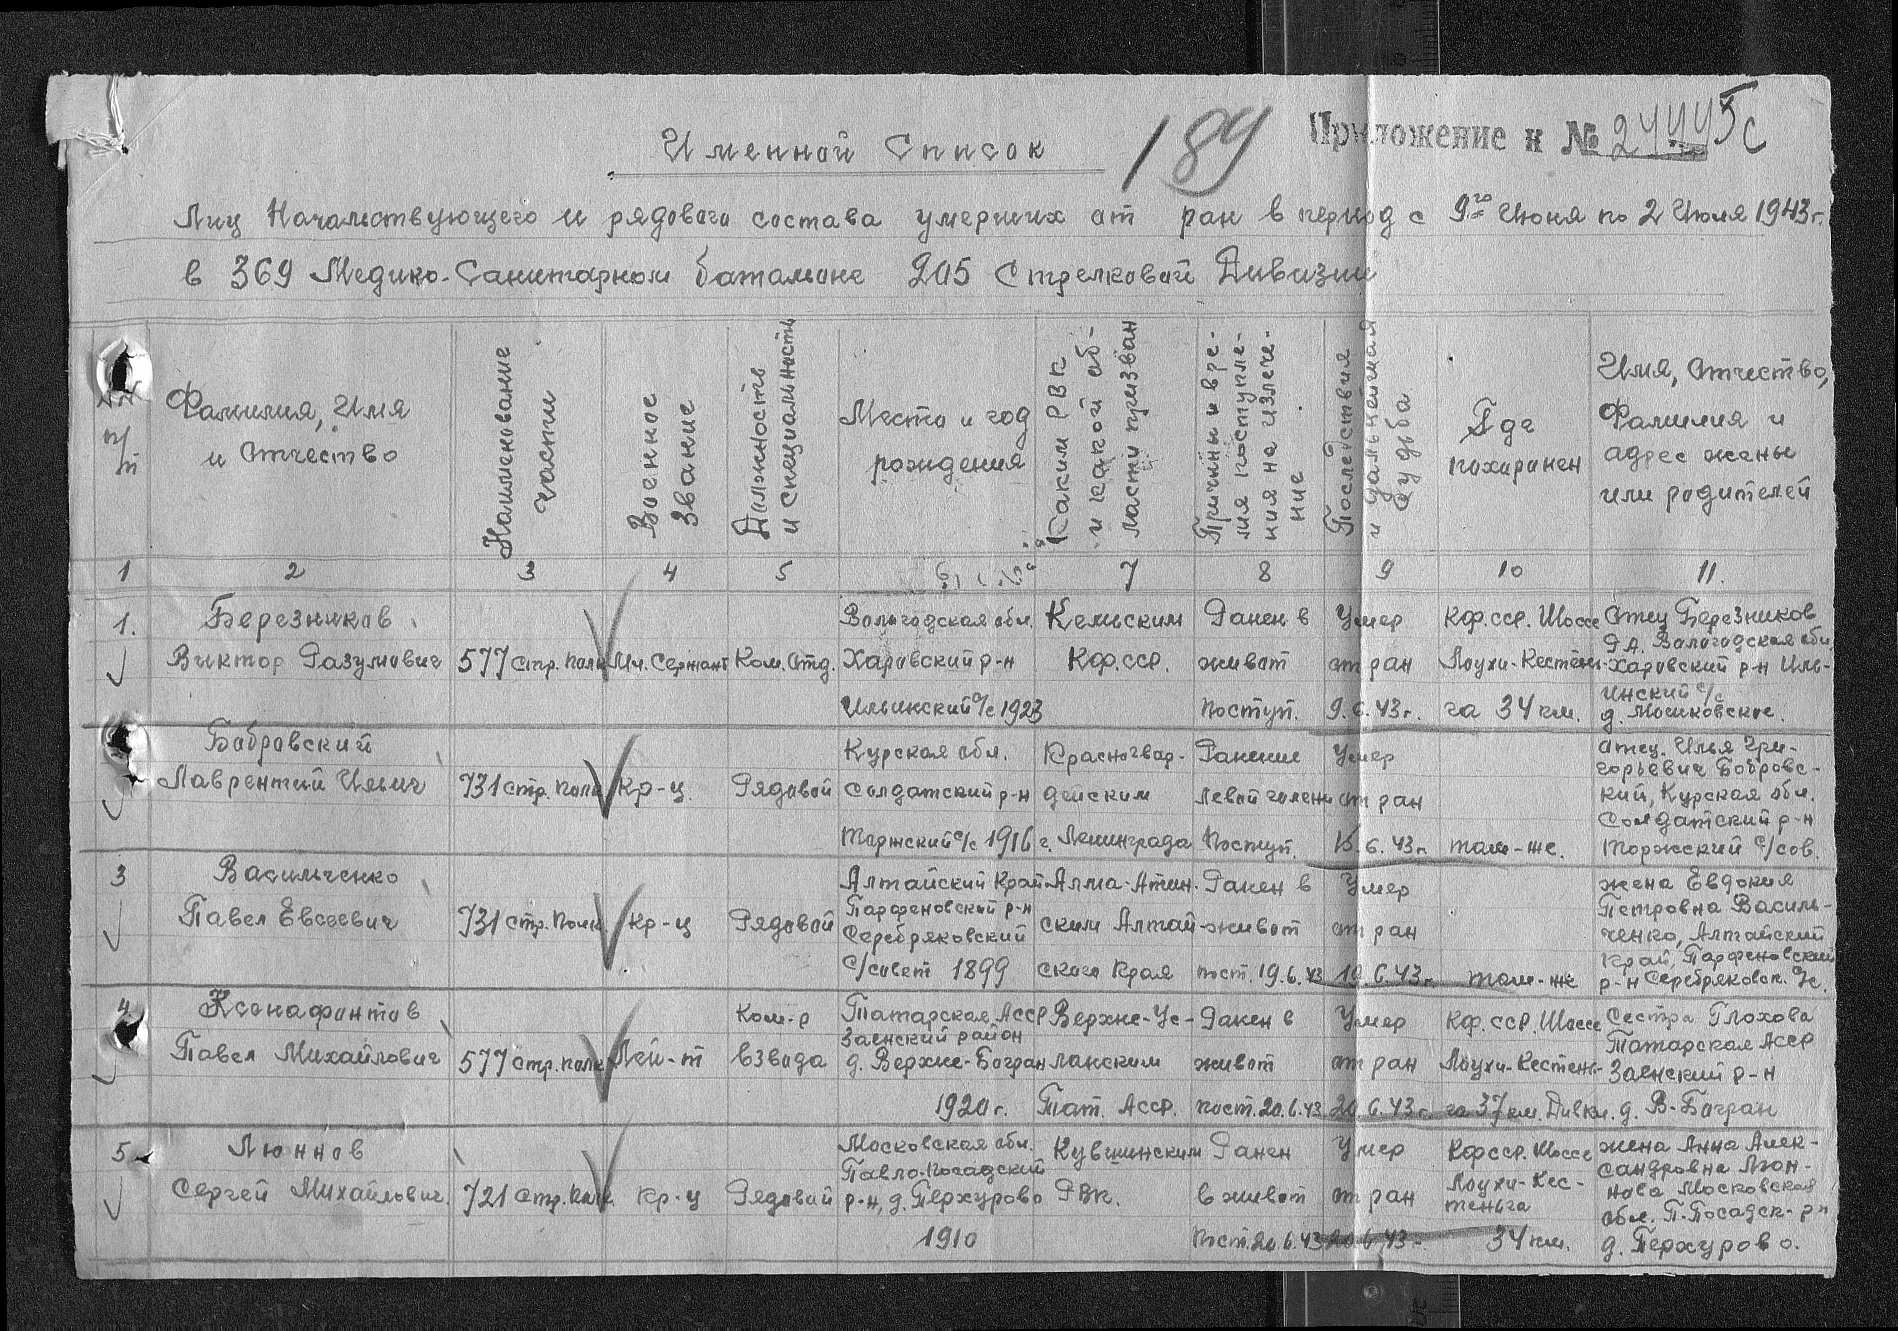 Именной Список
189
Приложение к № 24445с
Лиц Начальствующего и рядового состава умерших от ран в период с 9го Июня по 2 Июля 1943 г.
в 369 Медико-Санитарном батальоне 205 Стрелковой Дивизии
№№ п/п
Фамилия, Имя и Отчество
Наименование части
Военное Звание
Должность и специальность
Место и год рождения
Каким РВК и какой области призван
Причины и время поступления на излечение
Последствия и дальнейшая судьба
Где похоронен
Имя, Отчество, Фамилия и адрес жены или родителей
1 2 3 4 5 6 7 8 9 10 11.
1.
Березников
Виктор Разумович
577 стр. полк
Мл. Сержант
Ком. Отд.
Вологодская обл.
Харовский р-н
Ильинский с/с 1923
Кемским
Кф.сср.
Ранен в
живот
поступ.
Умер
от ран
9.6.43г.
Кф.сср. Шоссе
Лоухи-Кестень-
га 34 км.
Отец Березников
Р.А. Вологодская обл.
Харовский р-н Иль-
инский с/с
д. Мошковское.
Бобровский
Лаврентий Ильич
731 стр. полк
Кр-ц.
Рядовой
Курская обл.
Солдатский р-н
Торжский с/с 1916 г.
Красногвар-
дейским
Ленинграда
Ранение
левой голени
Поступ.
Умер
от ран
15.6.43г.
там-же.
отец. Илья Гри-
горьевич Бобровс-
кий, Курская обл.
Солдатский р-н
Торжский с/сов.
3
Васильченко
Павел Евсеевич
731 стр. полк.
Кр-ц
Рядовой
Алтайский Край
Парфеновский р-н
Серебряковский
с/совет 1899
Алма-Атин.
ским Алтай-
ского Края
Ранен в
живот
пост. 19.6.43
Умер
от ран
19.6.43г.
там-же
жена Евдокия
Петровна Василь-
ченко, Алтайский
Край, Парфеновский
р-н Серебряковск. с/с.
4.
Ксенафонтов
Павел Михайлович
577 стр. полк
Лей-т
Ком-р
взвода
Татарская Асср
Заенский район
д. Верхне-Богран
1920 г.
Верхне-Ус-
лонским
Тат. Асср.
Ранен в
живот
пост. 20.6.43
Умер
от ран
20.6.43г.
Кф. сср. Шоссе
Лоухи-Кестень-
га 37 км.
Сестра Глохова
Татарская Асср
Заенский р-н
д. В-Богран
5
Люннов
Сергей Михайлович.
721 стр. полк.
Кр-ц
Рядовой
Московская обл.
Павло-Посадский
р-н, д. Перхурово
1910
Кувшинским
РВК.
Ранен
в живот
Пост. 20.6.43
Умер
от ран
20.6.43г.
Кф сср. Шоссе
Лоухи-Кес-
теньга
34 км.
жена Анна Алек-
сандровна Люн-
нова Московская
обл. П-Посадск. р-н
д. Перхурово.